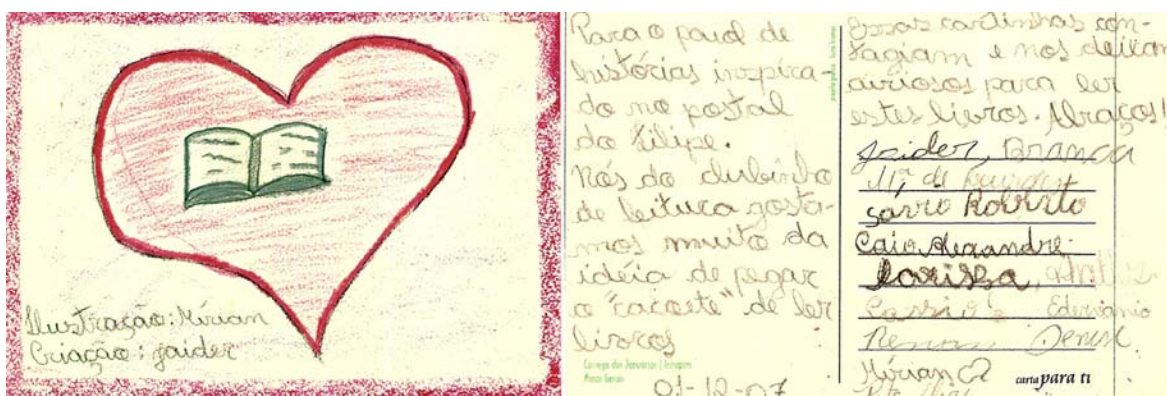 Ilustração: Mírian
Criação: jaider
Para o paiol de
histórias inspira-
do no postal
do Filipe.
Nós do clubinho
de leitura gosta-
mos muito da
idéia de pegar
o "cacoete" de ler
livros
Córrego dos Januários | Inhapim
Minas Gerais
01-12-07
Essas cartinhas con-
tagiam e nos deixam
curiosos para ler
estes livros. Abraços!
Jaider, BRANCA
Mª de
Sávio Roberto
Caio Alexandre
Larissa,
Cassio e Edervânio
Renan Denise
Mírian
carta para ti